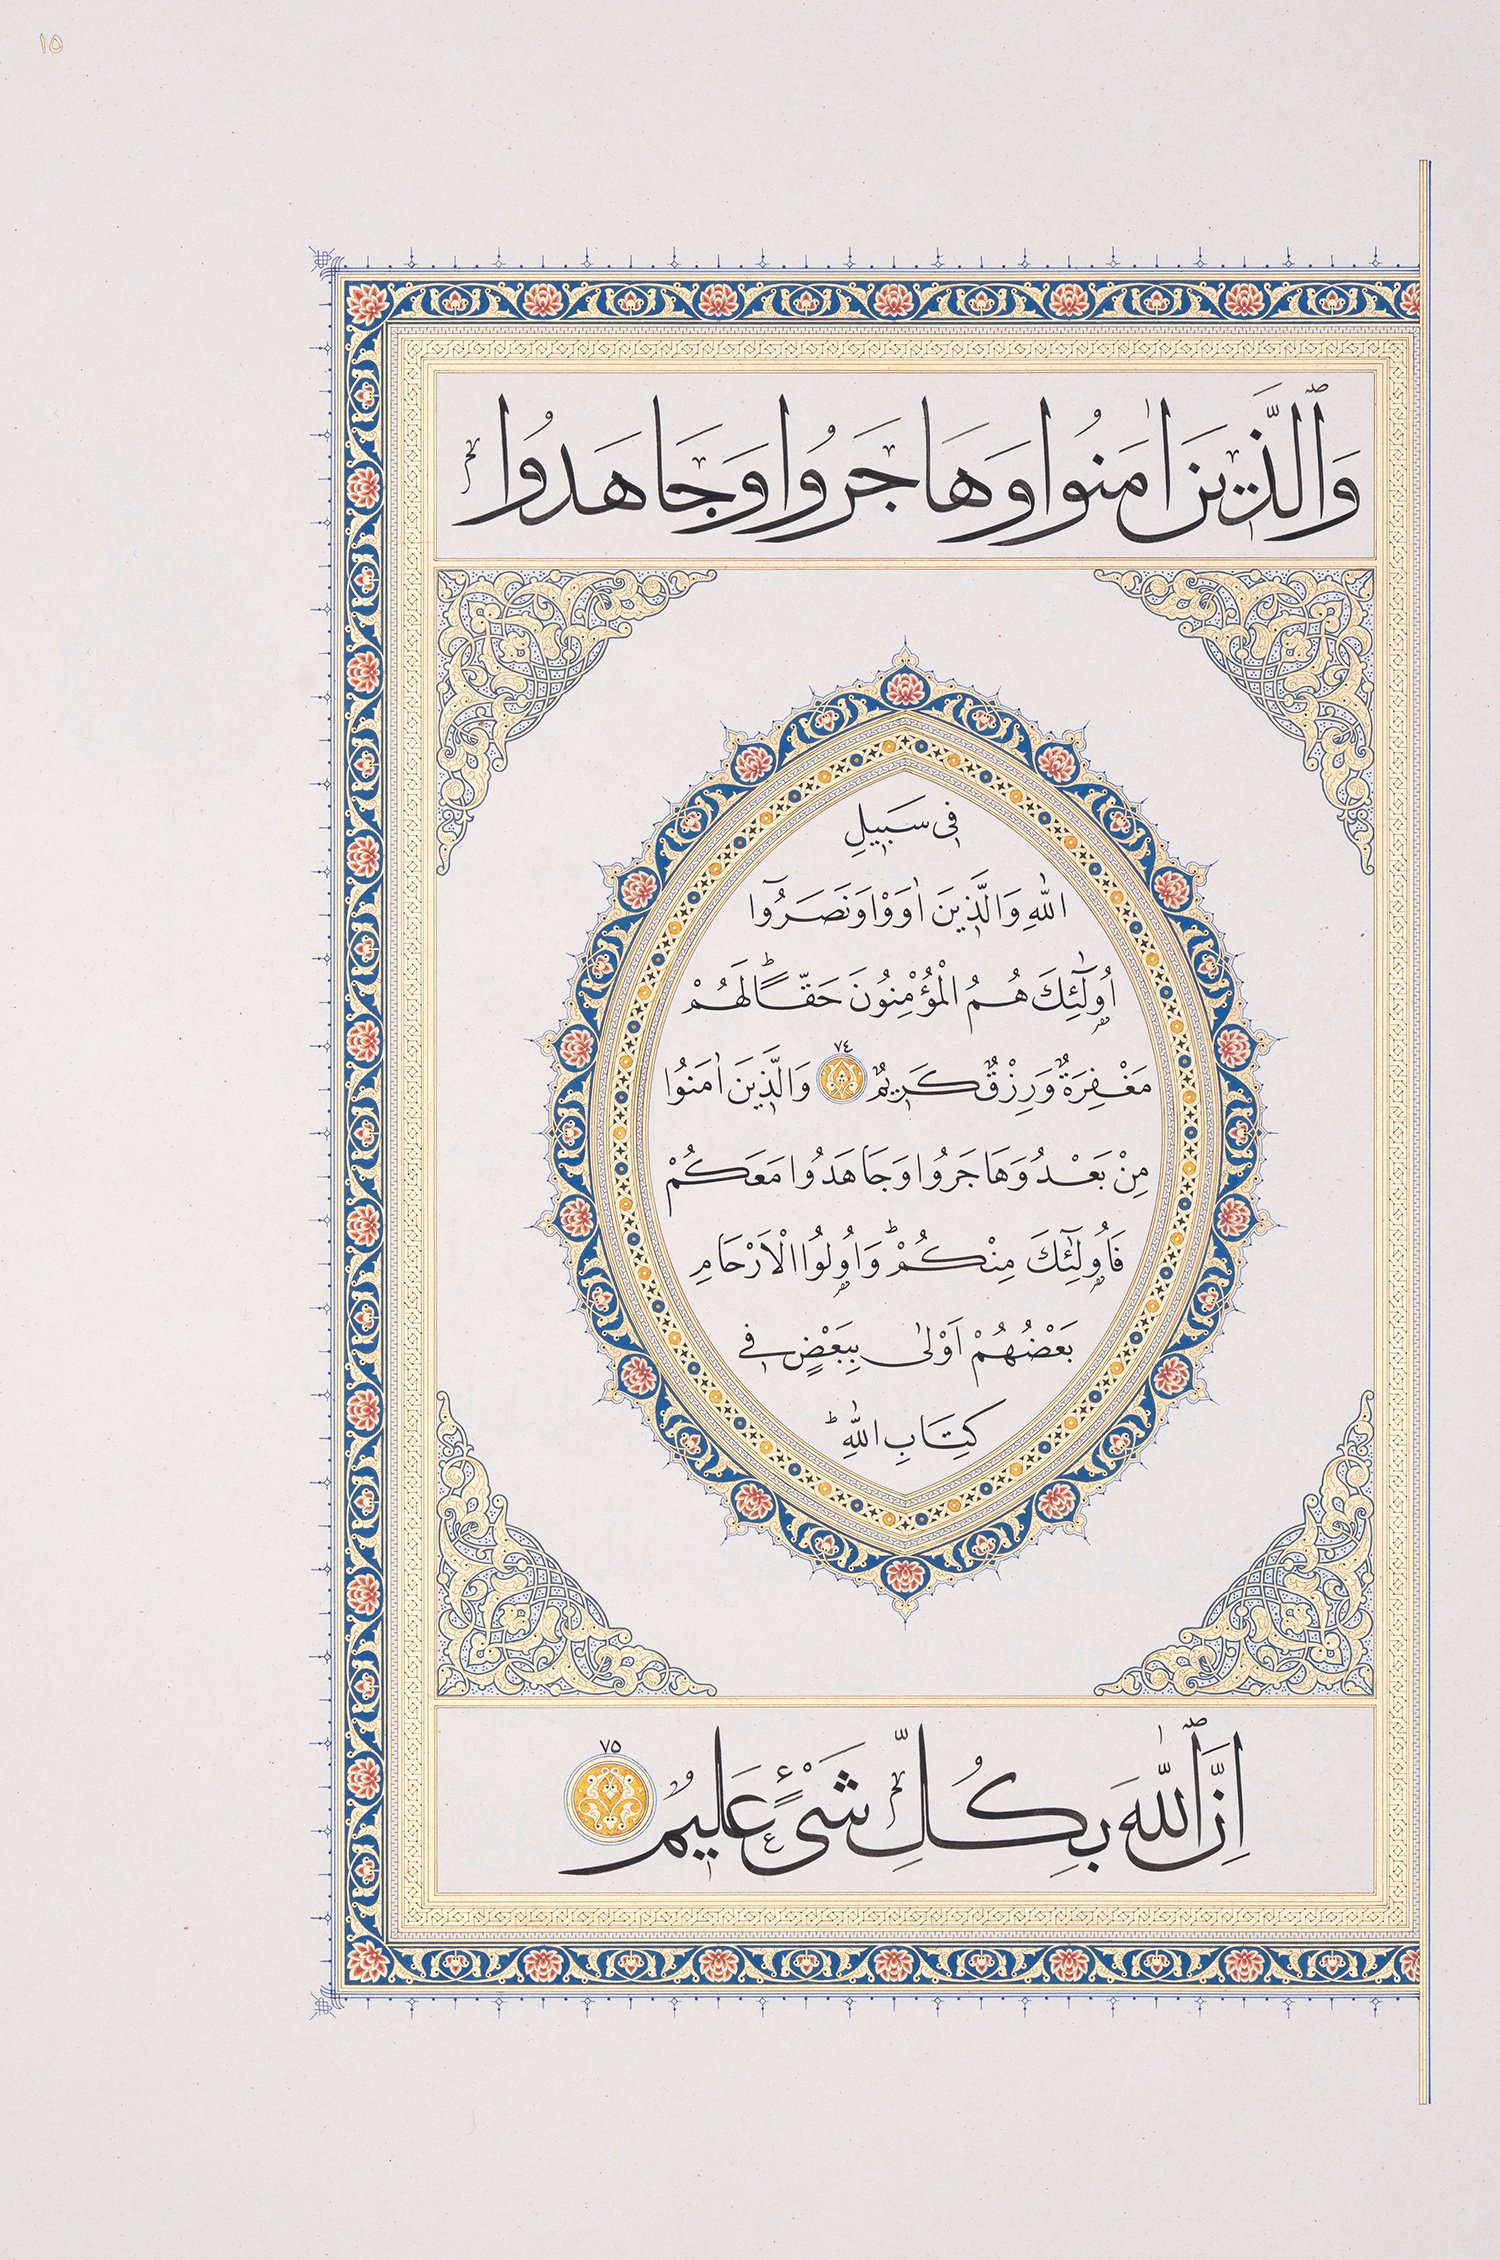 ١٥
وَٱلَّذٖينَ اٰمَنُوا وَهَاجَرُوا وَجَاهَدُوا
فٖى سَبٖيلِ
اللّٰهِ وَالَّذٖينَ اٰوَوْا وَنَصَرُٓوا
اُو۬لٰٓئِكَ هُمُ الْمُؤْمِنُونَ حَقًّاؕ لَهُمْ
مَغْفِرَةٌ وَرِزْقٌ كَرٖيمٌ ٧٤ وَالَّذٖينَ اٰمَنُوا
مِنْ بَعْدُ وَهَاجَرُوا وَجَاهَدُوا مَعَكُمْ
فَاُو۬لٰٓئِكَ مِنْكُمْؕ وَاُو۬لُوا الْاَرْحَامِ
بَعْضُهُمْ اَوْلٰى بِبَعْضٍ فٖى
كِتَابِ اللّٰهِؕ
اِنَّ ٱللّٰهَ بِكُلِّ شَىْءٍ عَلٖيمٌ ٧٥